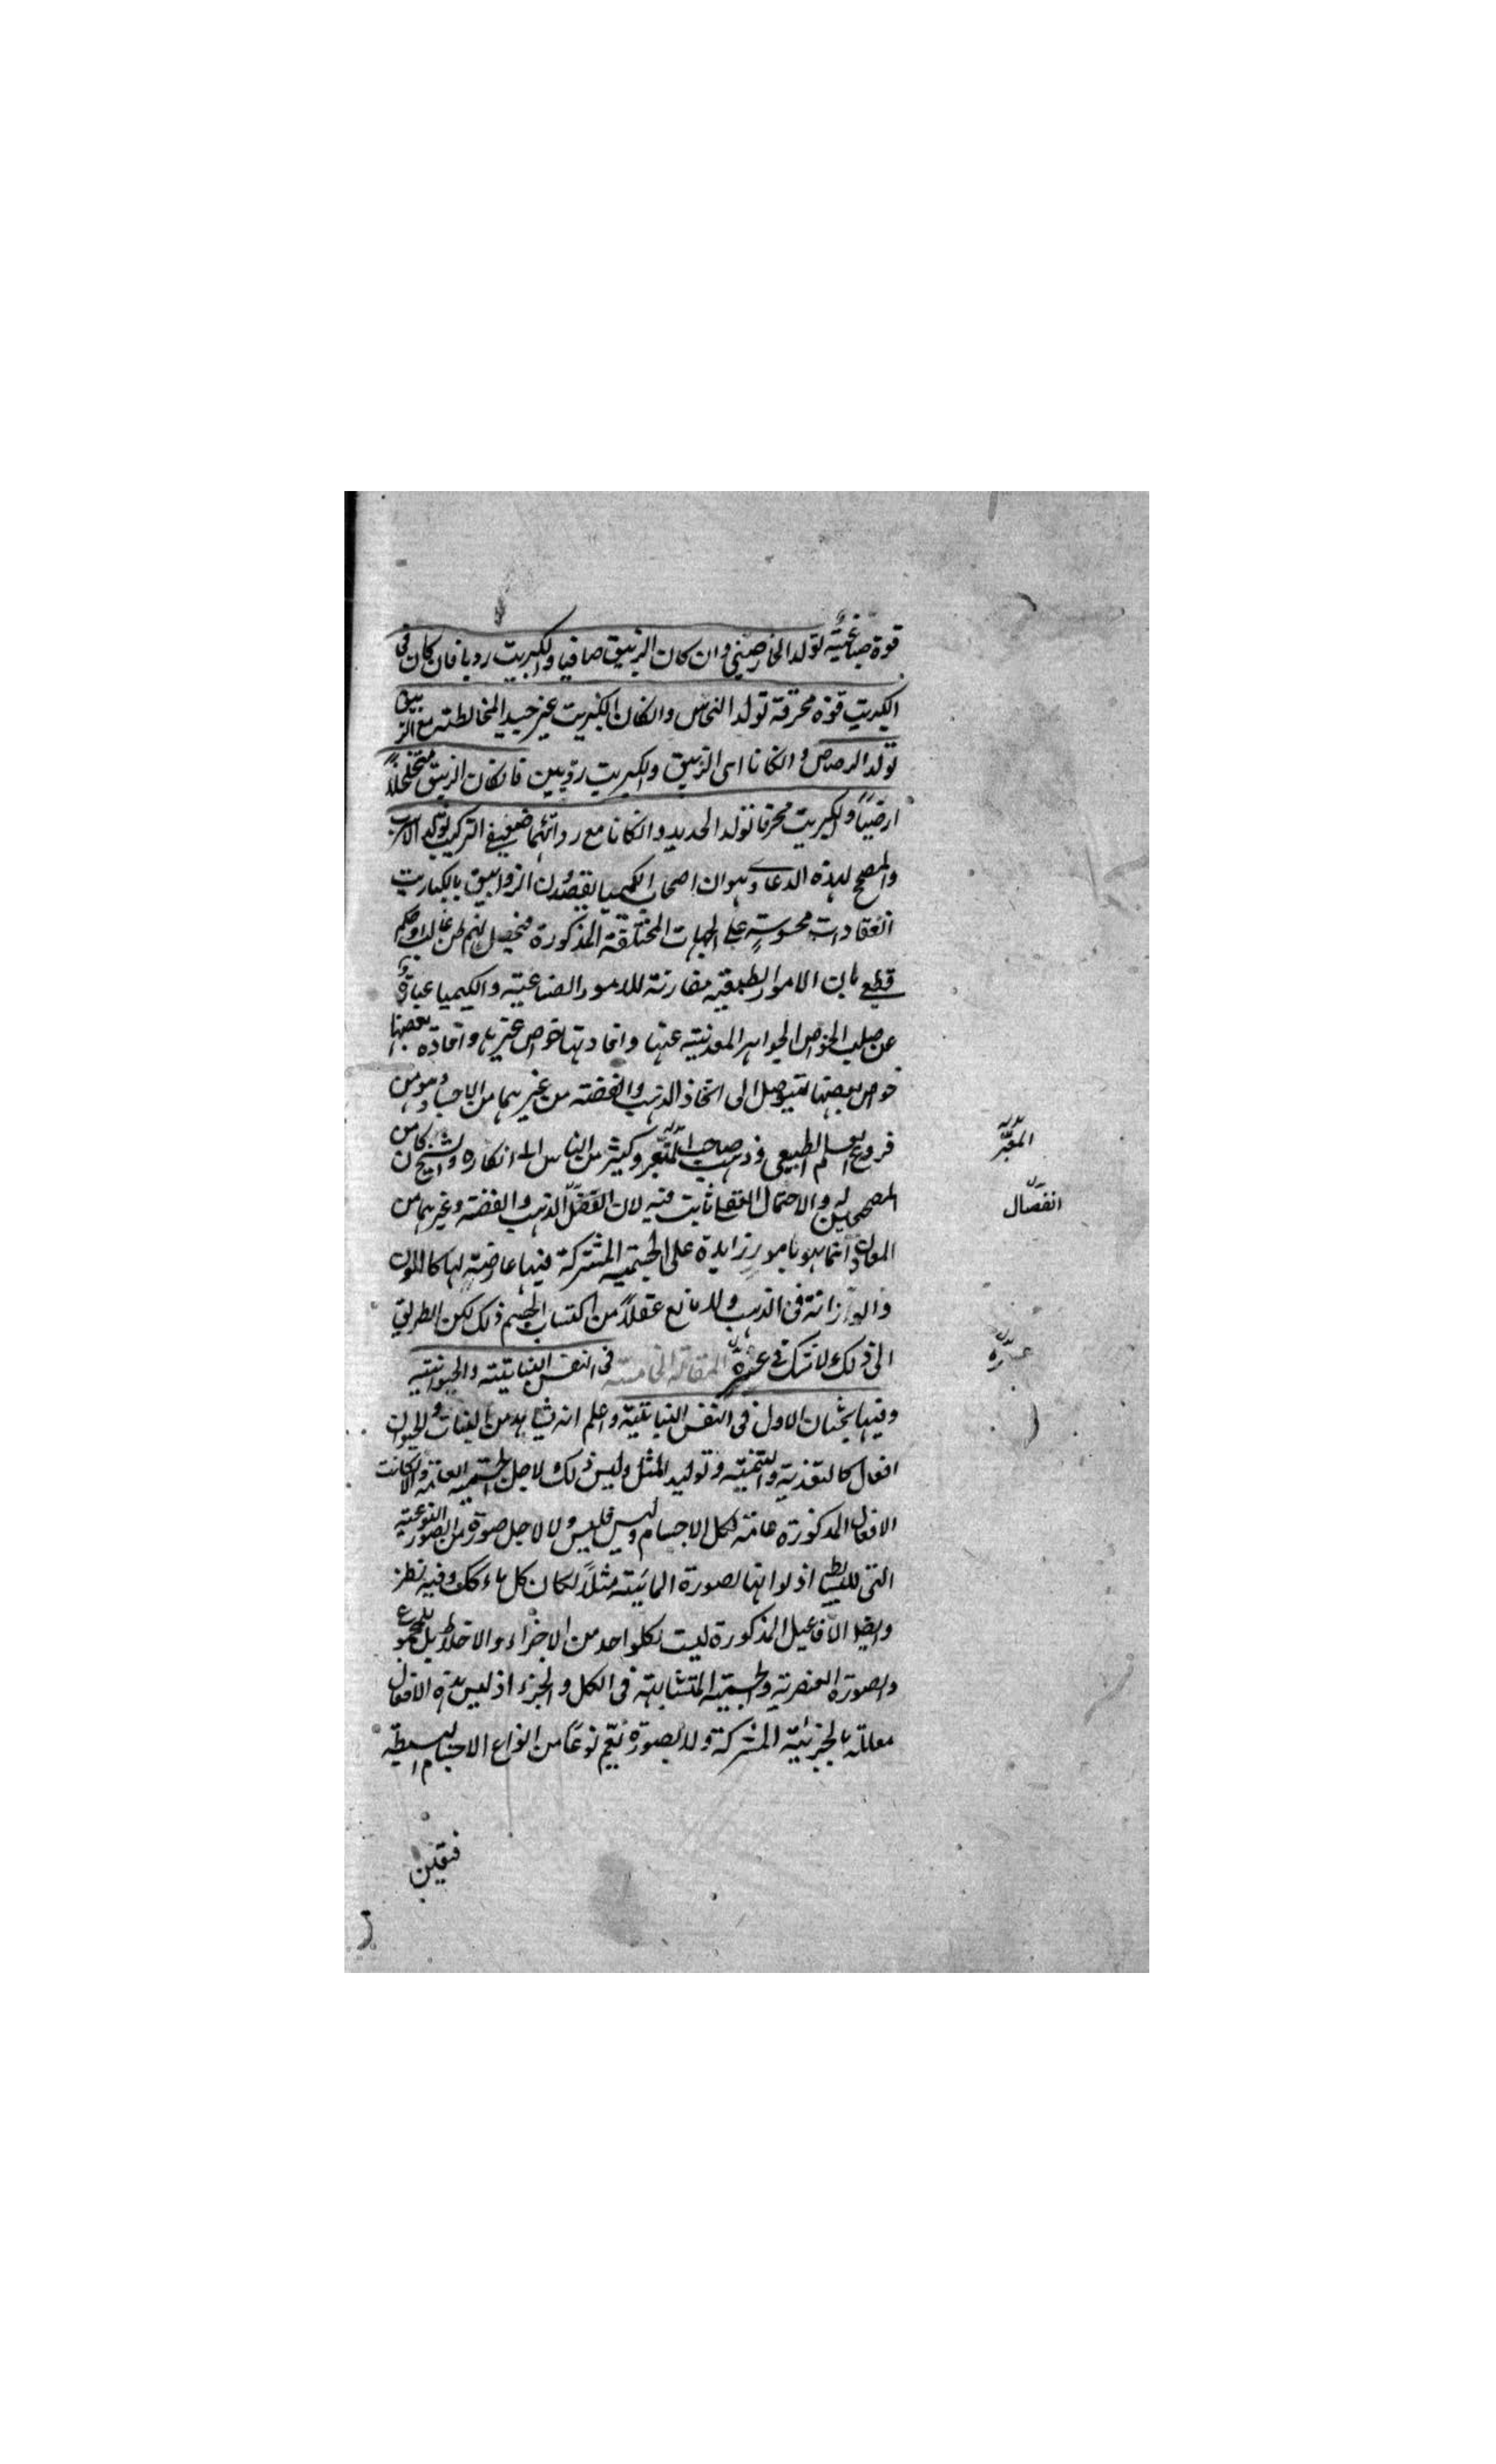 قوة صباغية تولد الخارصيني وان كان الزيبق صافيا والكبريت رديا فان كان فى
الكبريت قوة محرقة تولد النحاس وانكان الكبريت غير جيد المخالطته مع الزيبق
تولد الرصاص وانكانا اى الزيبق والكبريت رديين فانكان الزيبق متخلخلاً
ارضيًا والكبريت محرقا تولد الحديد وانكانا مع ردائتهما ضعيفى التركيب تولد الاسرب
والمصحح لهذه الدعاوى هو ان اصحاب الكيميا يعقدون الزوابيق بالكباريت
انعقادات محسوسة على الجهات المختلفة المذكورة فيحصل لهم ظن غالب او حكم
قطعى بان الامور الطبيعية مقارنة للامور الصناعية والكيميا عبارة
عن سلب الخواص الجواهر المعدنية عنها وافادتها خواص غيرها وافادة بعضها
خواص بعضها ليتوصل الى اتخاذ الذهب والفضة من غيرهما من الاجساد وهو من
فروع العلم الطبيعى وذهب صاحب المعتبر وكثير من الناس الى انكاره والشيخ كان من
المصححين له والاحتمال العقلى ثابت فيه لان انفصال الذهب والفضة وغيرهما من
المعادن انما هو بامور زايدة على الجسمية المشتركة فيها عارضة لها كاللون
والرزانة فى الذهب ولا مانع عقلاً من اكتساب الجسم ذلك لكن الطريق
الى ذلك لا شك فى عسره المقالة الخامسة فى النفس النباتية والحيوانية
وفيها بحثان الاول فى النفس النباتية واعلم انه شاهد من النبات والحيوان
افعال كالتغذية والتنمية وتوليد المثل وليس ذلك لاجل الجسمية العامة والا لكانت
الافعال المذكورة عامة لكل الاجسام وليس فليس ولا لاجل صورة من الصور النوعية
التى للبسايط اذ لو انها لصورة المائية مثلاً لكان كل ماء كك وفيه نظر
وايضا الافاعيل المذكورة ليست لكلواحد من الاجزاء والاخلاط بل للمجموع
والصورة العنصرية والجسمية المتشابهة فى الكل والجزء اذ ليس هذه الافعال
معللة بالجزئية المشتركة ولا بصورة تعم نوعًا من انواع الاجسام البسيطة
المعتبر
انفصال
عسره
فيقين